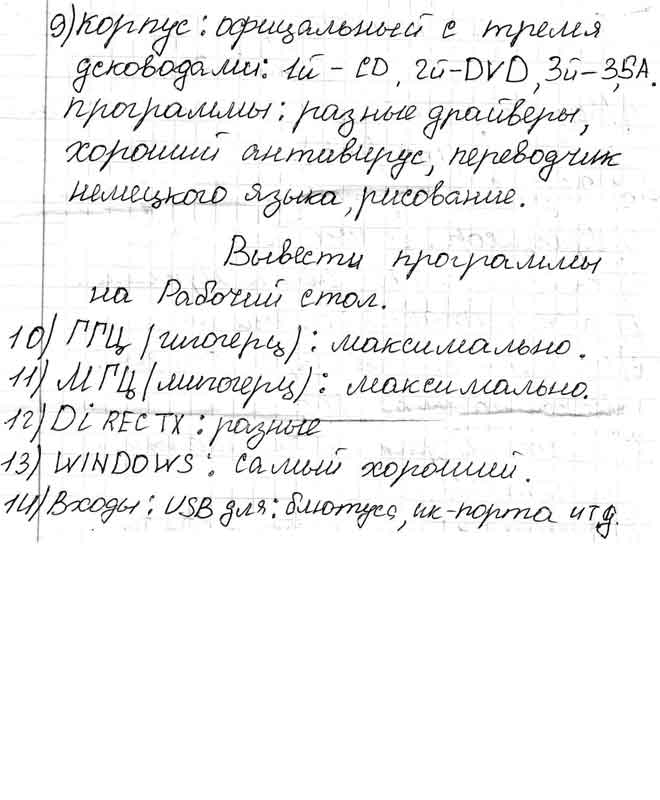 9) Корпус: официальный с тремя
дсководами: 1й - CD, 2й-DVD, 3й-3,5А.
программы: разные драйверы,
хороший антивирус, переводчик
немецкого языка, рисование.
Вывести программы
на Рабочий стол.
10) ГГЦ (гигогерц): максимально.
11) МГЦ (мигогерц): максимально.
12) DiRECTX: разные
13) WINDOWS: самый хороший.
14) Входы: USB для: блютуса, ик-порта итд.